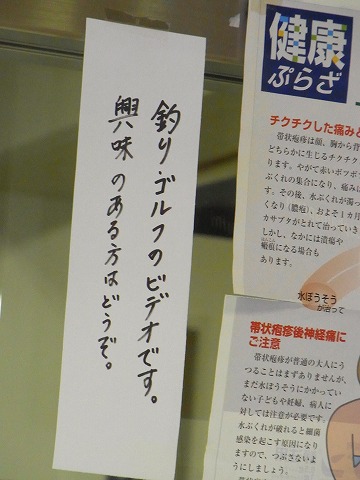 釣り・ゴルフのビデオです。
興味のある方はどうぞ。
健康
ぷらざ
チクチクした痛みと
帯状疱疹は顔、胸から背
どちらかに生じるチクチク
ります。やがて赤いポツポツ
ぶくれの集合になり、痛みは
す。その後、水ぶくれが濁っ
くなり(膿疱)、およそ1カ月
カサブタがとれて治っていき
しかし、なかには潰瘍や
瘢痕になる場合も
あります。
水ぼうそう
が治って
帯状疱疹後神経痛に
ご注意
帯状疱疹が普通の大人にう
つることはまずありませんが、
まだ水ぼうそうにかかってい
ない子どもや妊婦、病人に
対しては注意が必要です。
水ぶくれが破れると細菌
感染を起こす原因になり
ますので、つぶさないよ
うにしましょう。